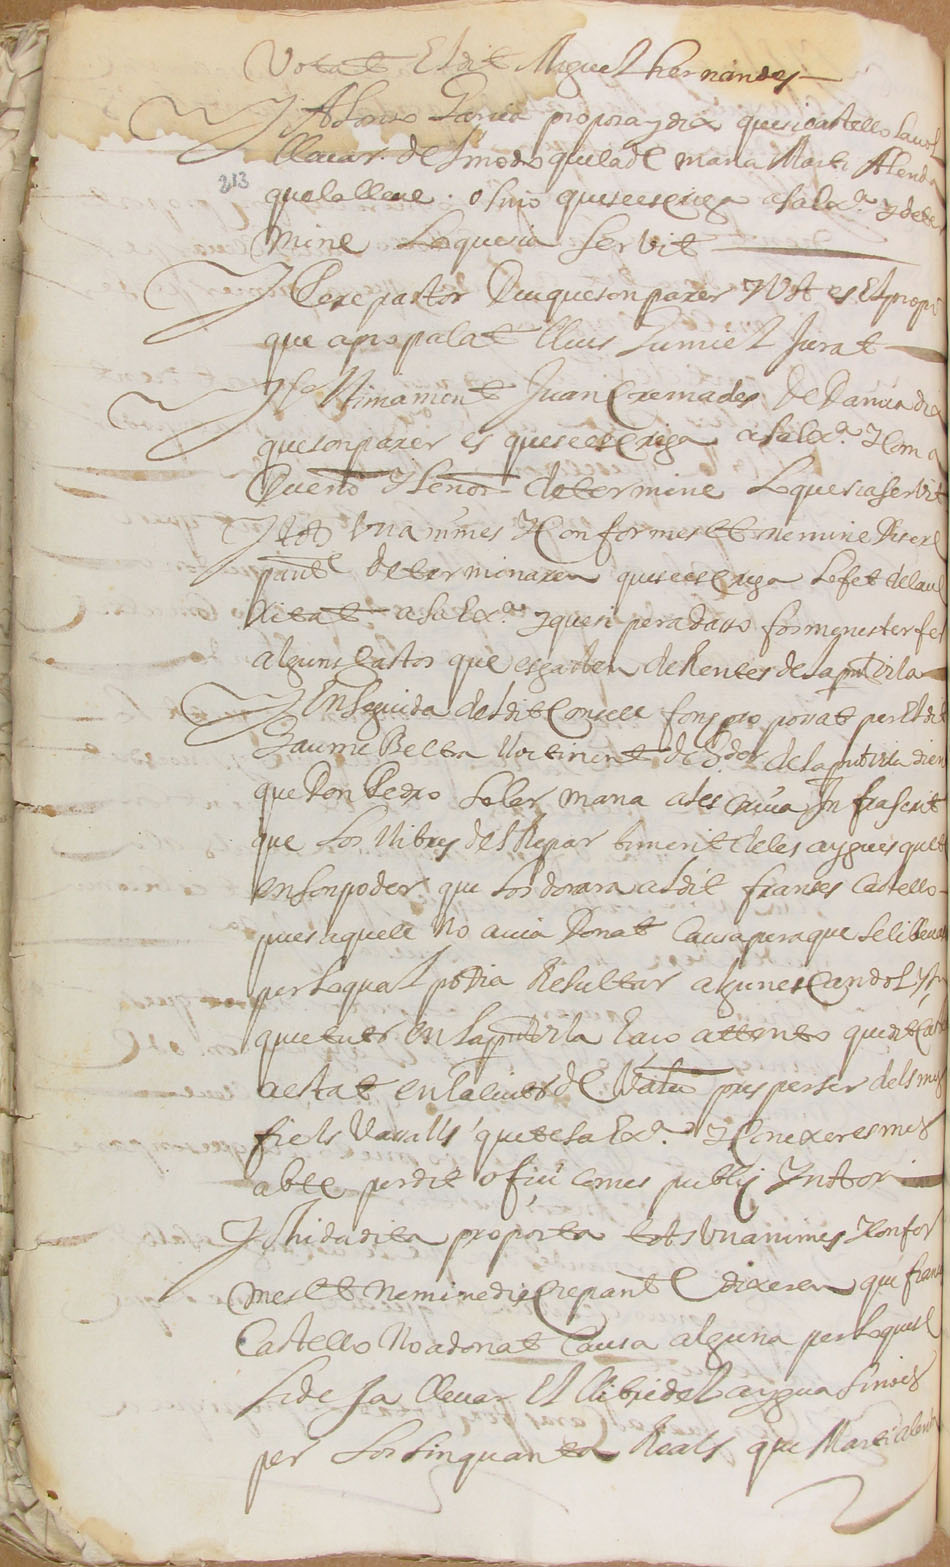 Votat El dit Miguel hernandes
Y Alonso Garcia proposa y dix que si castello sauol
lleuar. del modo que la de maria Marti Alenda
213
que lo lleue. o sino que se escriga a sa Exª. y deter
mine lo que sia servit
Y Pere pastor Diu que son parer y Vot es El propi
que a propalat lluis Jumiel Jurat
Y Vltimament Juan Cremades de Damia dix
que son parer es que se escriga a sa Exª. Y Com a
Dueño Y señor determine lo que sia servit
Y tots Vnanimes Y Conformes et nemine Discre
pant determinaren que se escriga lo fet de la
Veritat a sa Exª. y que si pera dasso fos menester fer
alguns Gastos que es gasten de Rentes de sa pnt vila
Y En seguida del dit Consell fons pro posat per El dit
Jaume Belba lloctinent de Gdor de la pnt vila dient
que Don Pedro Soler mana a les Criua Infrascrit
que los llibres del Repar timent de les aygues que te
en son poder que los donara al dit franses Castello
pues aquell no auia Donat Causa pera que se li lleuas
per lo qual podia Resultar algun escandol y in
quietut en la pnt vila Y aco attento que dit Cas
a estat en la ciutat de Vala pus per ser dels mes
fiels Vasalls que te sa Exª. Y Coneixeres mes
able per dit offici Comes publich Y notori
Y hoida dita proposta tots Vnanimes Y Confor
mes et nemine discrepant dixeren que franses
Castello No a donat Causa alguna per lo qual
se de Ja lleuar El llibre de l aygua sino es
per los sinquanta Reals que Marti alenda